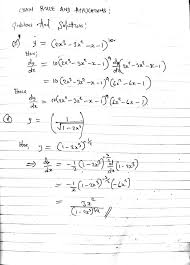 CHAIN RULE AND APPLICATIONS:
Problems And Solutions:
y = (2x³-3x²-x-1)¹⁰
Here,
dy/dx = 10(2x³-3x²-x-1)⁹ d/dx(2x³-3x²-x-1)
= 10(2x³-3x²-x-1)⁹(6x²-6x-1)
Thus
dy/dx = 10(2x³-3x²-x-1)⁹(6x²-6x-1)
y = (1/√(1-2x³))
Here, y = (1-2x³)^(-1/2)
⇒ dy/dx = -1/2(1-2x³)^(-3/2) d/dx(1-2x³)
= -1/2(1-2x³)^(-3/2)(-6x²)
= 3x²/(1-2x³)^(3/2)